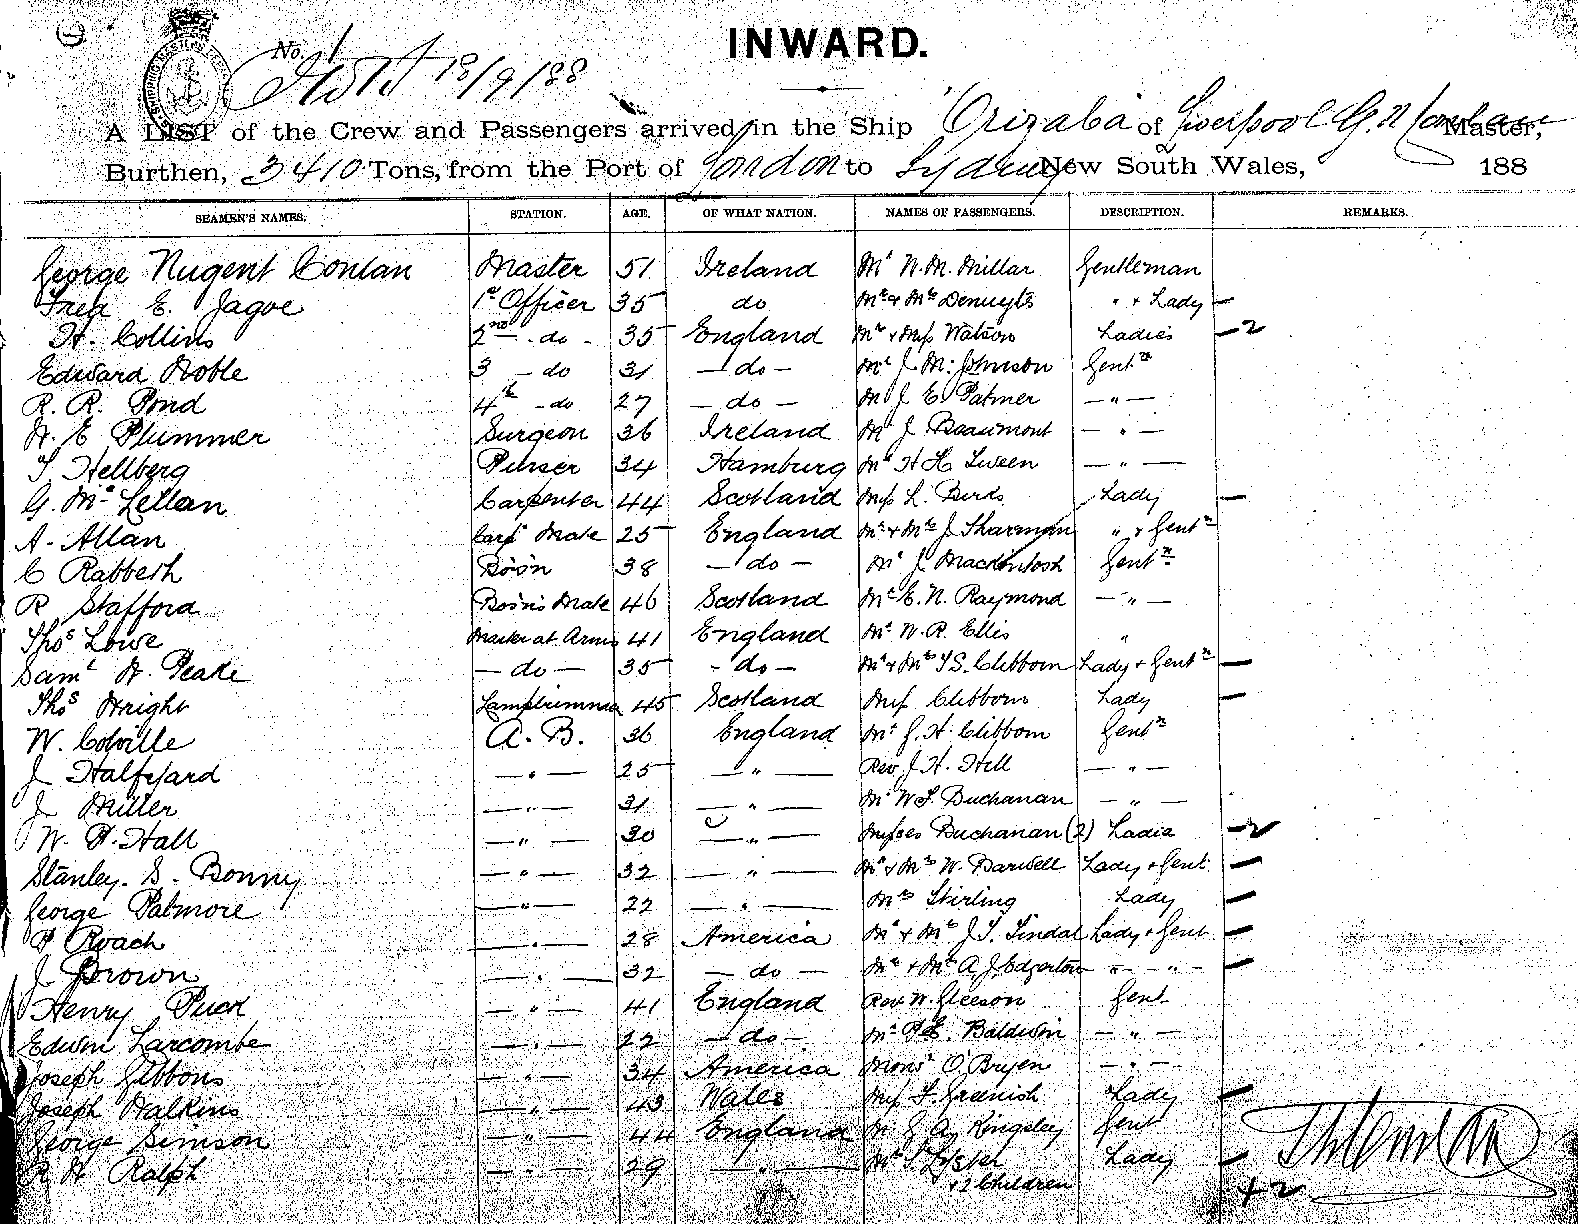 INWARD.
No. 1
18/9/88
A LIST of the Crew and Passengers arrived in the Ship "Orizaba" of Liverpool G. N. Conlan Master,
Burthen, 3410 Tons, from the Port of London to Sydney New South Wales, 188
SEAMEN'S NAMES. STATION. AGE. OF WHAT NATION. NAMES OF PASSENGERS. DESCRIPTION. REMARKS.
George Nugent Conlan Master 51 Ireland Mr N. M. Millar Gentleman
Fred E. Jagoe 1st Officer 35 do Mr & Mrs Denuyts " & Lady —
H. Collins 2nd - do - 35 England Mrs & Miss Watson Ladies — 2
Edward Noble 3 - do 31 - do - Mr J. M. Johnson Gentn
R. R. Pond 4th - do 27 - do - Mr J. E. Palmer — " —
W. E Plummer Surgeon 36 Ireland Mr J Beaumont — " —
T Hellberg Purser 34 Hamburg Mr H H Tween — " —
G. McLellan Carpenter 44 Scotland Miss L. Birds Lady —
A. Allan Carps Mate 25 England Mr & Mrs J Sharman " & Gentn
C Rabbeth Bo'sn 38 - do - Mr J. Mackintosh Gentn
R Stafford Bo'sn's Mate 46 Scotland Mr E. N. Raymond — " —
Thos Lowe Master at Arms 41 England Mr W. R. Ellis "
Saml W. Peake — do — 35 - do - Mr & Mrs T S. Clibborn Lady & Gentn —
Thos Wright Lamptrimmer 45 Scotland Miss Clibborn Lady —
W. Colville A. B. 36 England Mr J. H. Clibborn Gentn
J Halfyard — " — 25 — " — Rev J. H. Hill — " —
J Miller — " — 31 — " — Mr W. S. Buchanan — " —
W. P. Hall — " — 30 — " — Misses Buchanan (2) Ladie — 2
Stanley. S. Bonny — " — 32 — " — Mr & Mrs W. Barwell Lady & Gent —
George Patmore — " — 22 — " — Mrs Stirling Lady —
P Roach — " — 28 America Mr & Mrs J. T. Tindal Lady & Gent —
J Brown — " — 32 — do — Mr & Mrs A. J. Edgerton " - " —
Henry Puck — " — 41 England Rev W. Gleeson Gent
Edwin Larcombe — " — 22 - do - Mr P. E. Baldwin — " —
Joseph Gibbons — " — 34 America Monsr O'Bryen — " —
Joseph Walkins — " — 43 Wales Miss F. Greenish Lady —
George Simson — " — 44 England Mr G. A. Kingsley Gent
R W Ralph — " — 29 — " — Mrs Lady —
+ 2 Children + 2